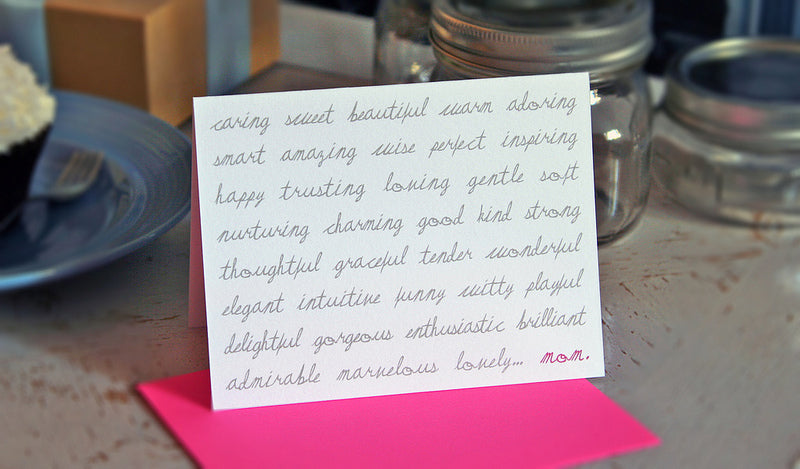 caring sweet beautiful warm adoring
smart amazing wise perfect inspiring
happy trusting loving gentle soft
nurturing charming good kind strong
thoughtful graceful tender wonderful
elegant intuitive funny witty playful
delightful gorgeous enthusiastic brilliant
admirable marvelous lovely... mom.